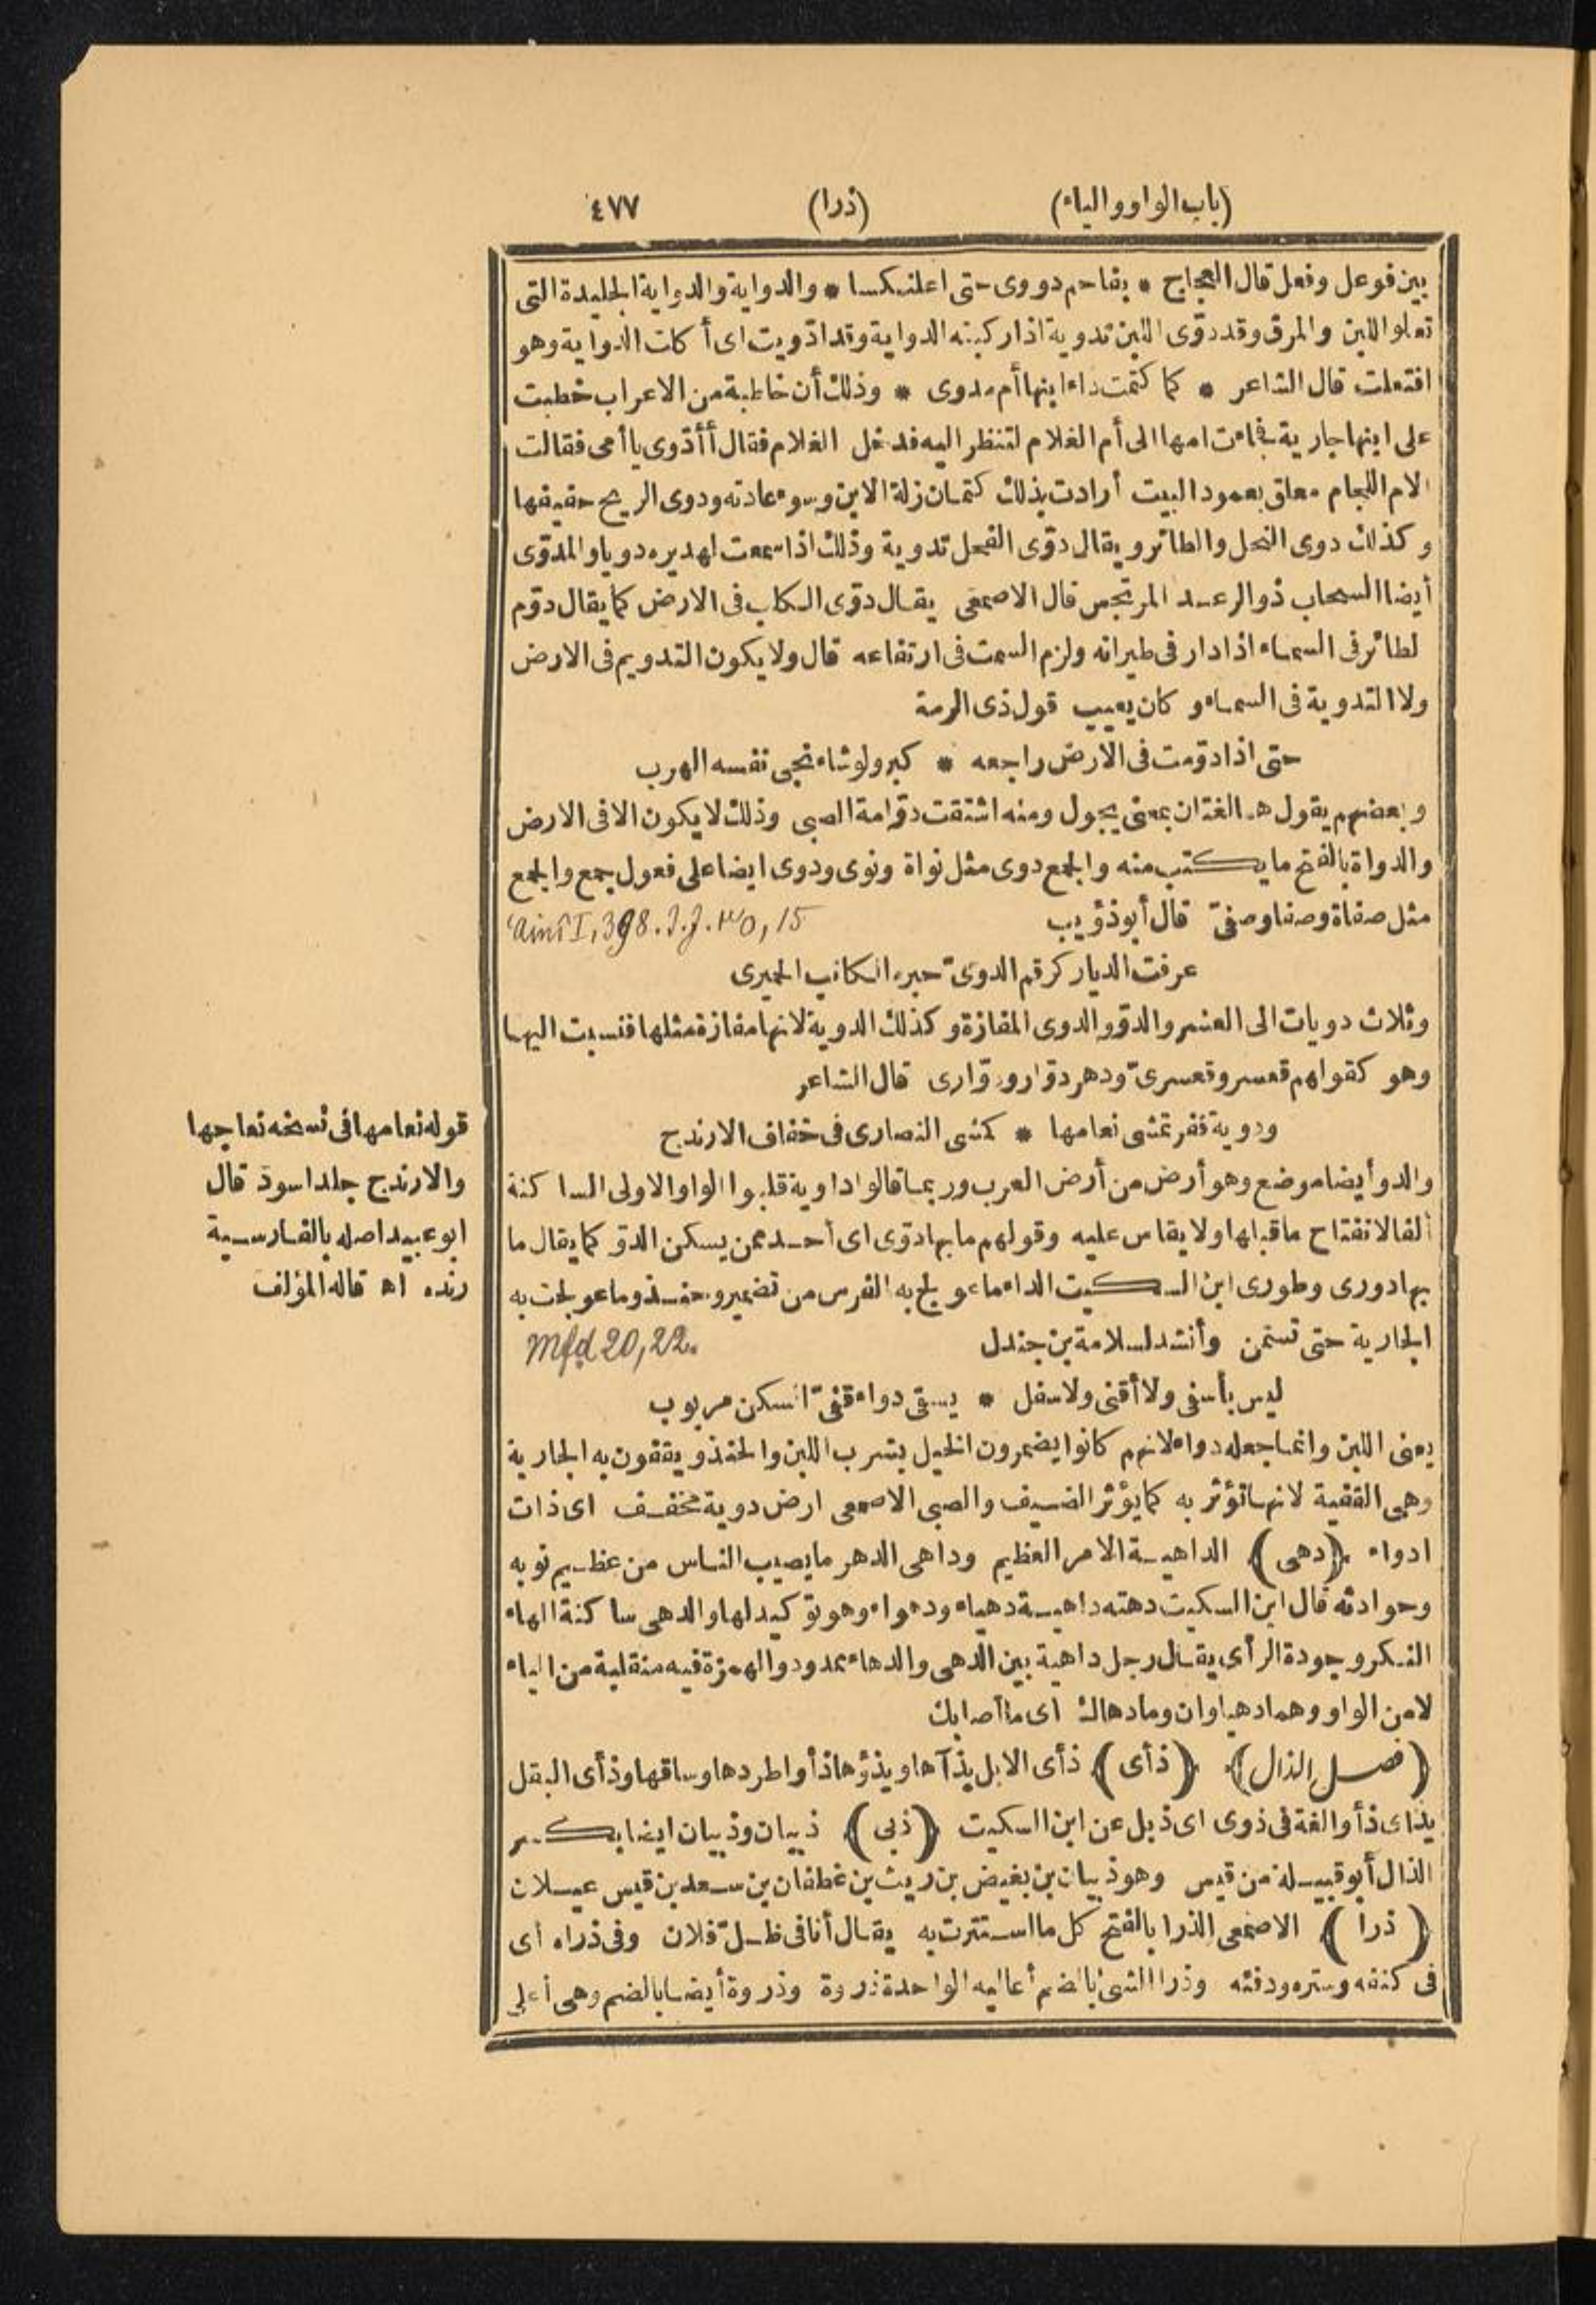 (باب الواو والياء) (ذرا) ٤٧٧
بين فوعل وفعل قال العجاج * بفاحم دووى حتى اعلنكسا * والدواية والدواية الجليدة التى
تعلو اللبن والمرق وقد دوّى اللبن تدوية اذا ركبته الدواية وقد ادّويت اى أ كلت الدواية وهو
افتعلت قال الشاعر * كما كتمت داء ابنها أم مدوى * وذلك أن خاطبة من الاعراب خطبت
على ابنها جارية فجاءت امها الى أم الغلام لتنظر اليه فدخل الغلام فقال أأدّوى يا أمى فقالت
الام اللجام معلق بعمود البيت أرادت بذلك كتمان زلة الابن وسوء عادته ودوى الريح حفيفها
وكذلك دوى النحل والطائر ويقال دوّى الفحل تدوية وذلك اذا سمعت لهديره دويا والمدوّى
أيضا السحاب ذو الرعد المرتجس قال الاصمعى يقال دوّى الكلب فى الارض كما يقال دوّم
لطائر فى السماء اذا دار فى طيرانه ولزم السمت فى ارتفاعه قال ولا يكون التدويم فى الارض
ولا التدوية فى السماء و كان يعيب قول ذى الرمة
حتى اذا دوّمت فى الارض راجعه * كبر ولو شاء نجى نفسه الهرب
وبعضهم يقول هما لغتان بمعنى يجول ومنه اشتقت دوّامة الصبى وذلك لا يكون الا فى الارض
والدواة بالفتح ما يكتب منه والجمع دوى مثل نواة ونوى ودوى ايضا على فعول جمع والجمع
مثل صفاة وصفا وصفىّ قال أبو ذؤيب 'Ainî I, 398. J.J. ٣٥, 15
عرفت الديار كرقم الدوىّ حبره الكاتب الحميرى
وثلاث دويات الى العشر والدوّ والدوى المفازة وكذلك الدوية لانها مفازة مثلها فنسبت اليها
وهو كقولهم قعسر وقعسرىّ ودهر دوّار ودوّارى قال الشاعر
ودوية قفر تمشى نعامها * كمشى النصارى فى خفاف الارندج
والدو أيضا موضع وهو أرض من أرض العرب وربما قالوا داوية قلبوا الواو الاولى الساكنة
ألفا لانفتاح ما قبلها ولا يقاس عليه وقولهم ما بها دوّى اى أحد ممن يسكن الدوّ كما يقال ما
بها دورى وطورى ابن السكيت الداء ما عولج به الفرس من تضمير وحنذ وما عولجت به
الجارية حتى تسمن وأنشد لسلامة بن جندل Mfd 20, 22.
ليس بأسفى ولا أقنى ولا سفل * يسقى دواء قفىّ السكن مربوب
يعنى اللبن وانما جعله دواء لانهم كانوا يضمرون الخيل بشرب اللبن والحنذ ويقفون به الجارية
وهى القفية لانها تؤثر به كما يؤثر الضيف والصبى الاصمعى ارض دوية مخفف اى ذات
ادواء (دهى) الداهية الامر العظيم ودواهى الدهر ما يصيب الناس من عظيم نوبه
وحوادثه قال ابن السكيت دهته داهية دهياء ودهواء وهو توكيد لها والدهى ساكنة الهاء
النكر وجودة الرأى يقال رجل داهية بين الدهى والدهاء ممدود والهمزة فيه منقلبة من الياء
لا من الواو وهما دهياوان وما دهاك اى ما أصابك
(فصل الذال) (ذأى) ذأى الابل يذآها ويذؤها ذأوا طردها وساقها وذأى البقل
يذاى ذأوا لغة فى ذوى اى ذبل عن ابن السكيت (ذبى) ذبيان وذبيان ايضا بكسر
الذال أبو قبيلة من قيس وهو ذبيان بن بغيض بن ريث بن غطفان بن سعد بن قيس عيلان
(ذرا) الاصمعى الذرا بالفتح كل ما استترت به يقال أنا فى ظلّ فلان وفى ذراه اى
فى كنفه وستره ودفئه وذرا الشئ بالضم أعاليه الواحدة ذروة وذروة أيضا بالضم وهى أعلى
قوله نعامها فى نسخه نعاجها
والارندج جلد اسود قال
ابو عبيد اصله بالفارسية
رنده اه قاله المؤلف